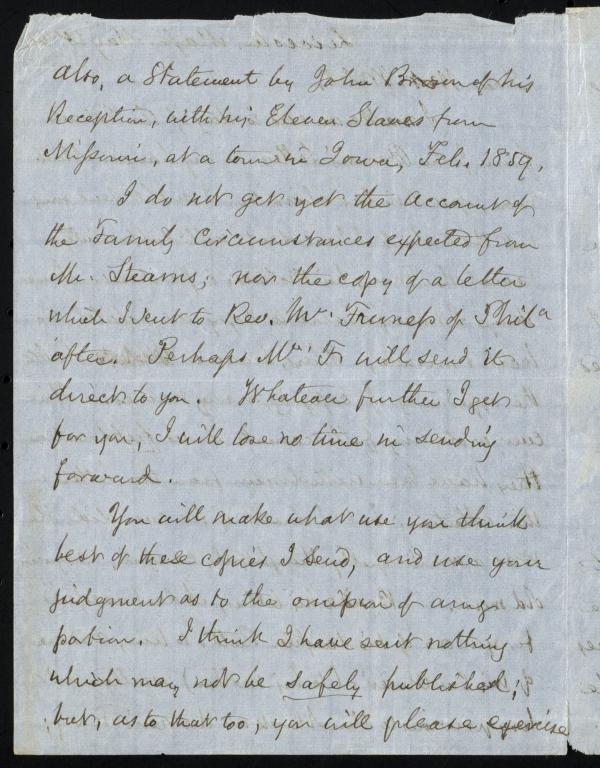 also, a Statement by John Brown of his
Reception, with his Eleven Slaves from
Missouri, at a town in Iowa, Feb. 1859.
I do not get yet the account of
the Family Circumstances expected from
Mr. Stearns; nor the copy of a letter
which I sent to Rev. Mr. Furness of Phila
after. Perhaps Mr. F. will send it
direct to you. Whatever further I get
for you, I will lose no time in sending
forward.
You will make what use you think
best of these copies I send, and use your
judgment as to the omission of any
portion. I think I have sent nothing
which may not be safely published;
but, as to that too, you will please exercise